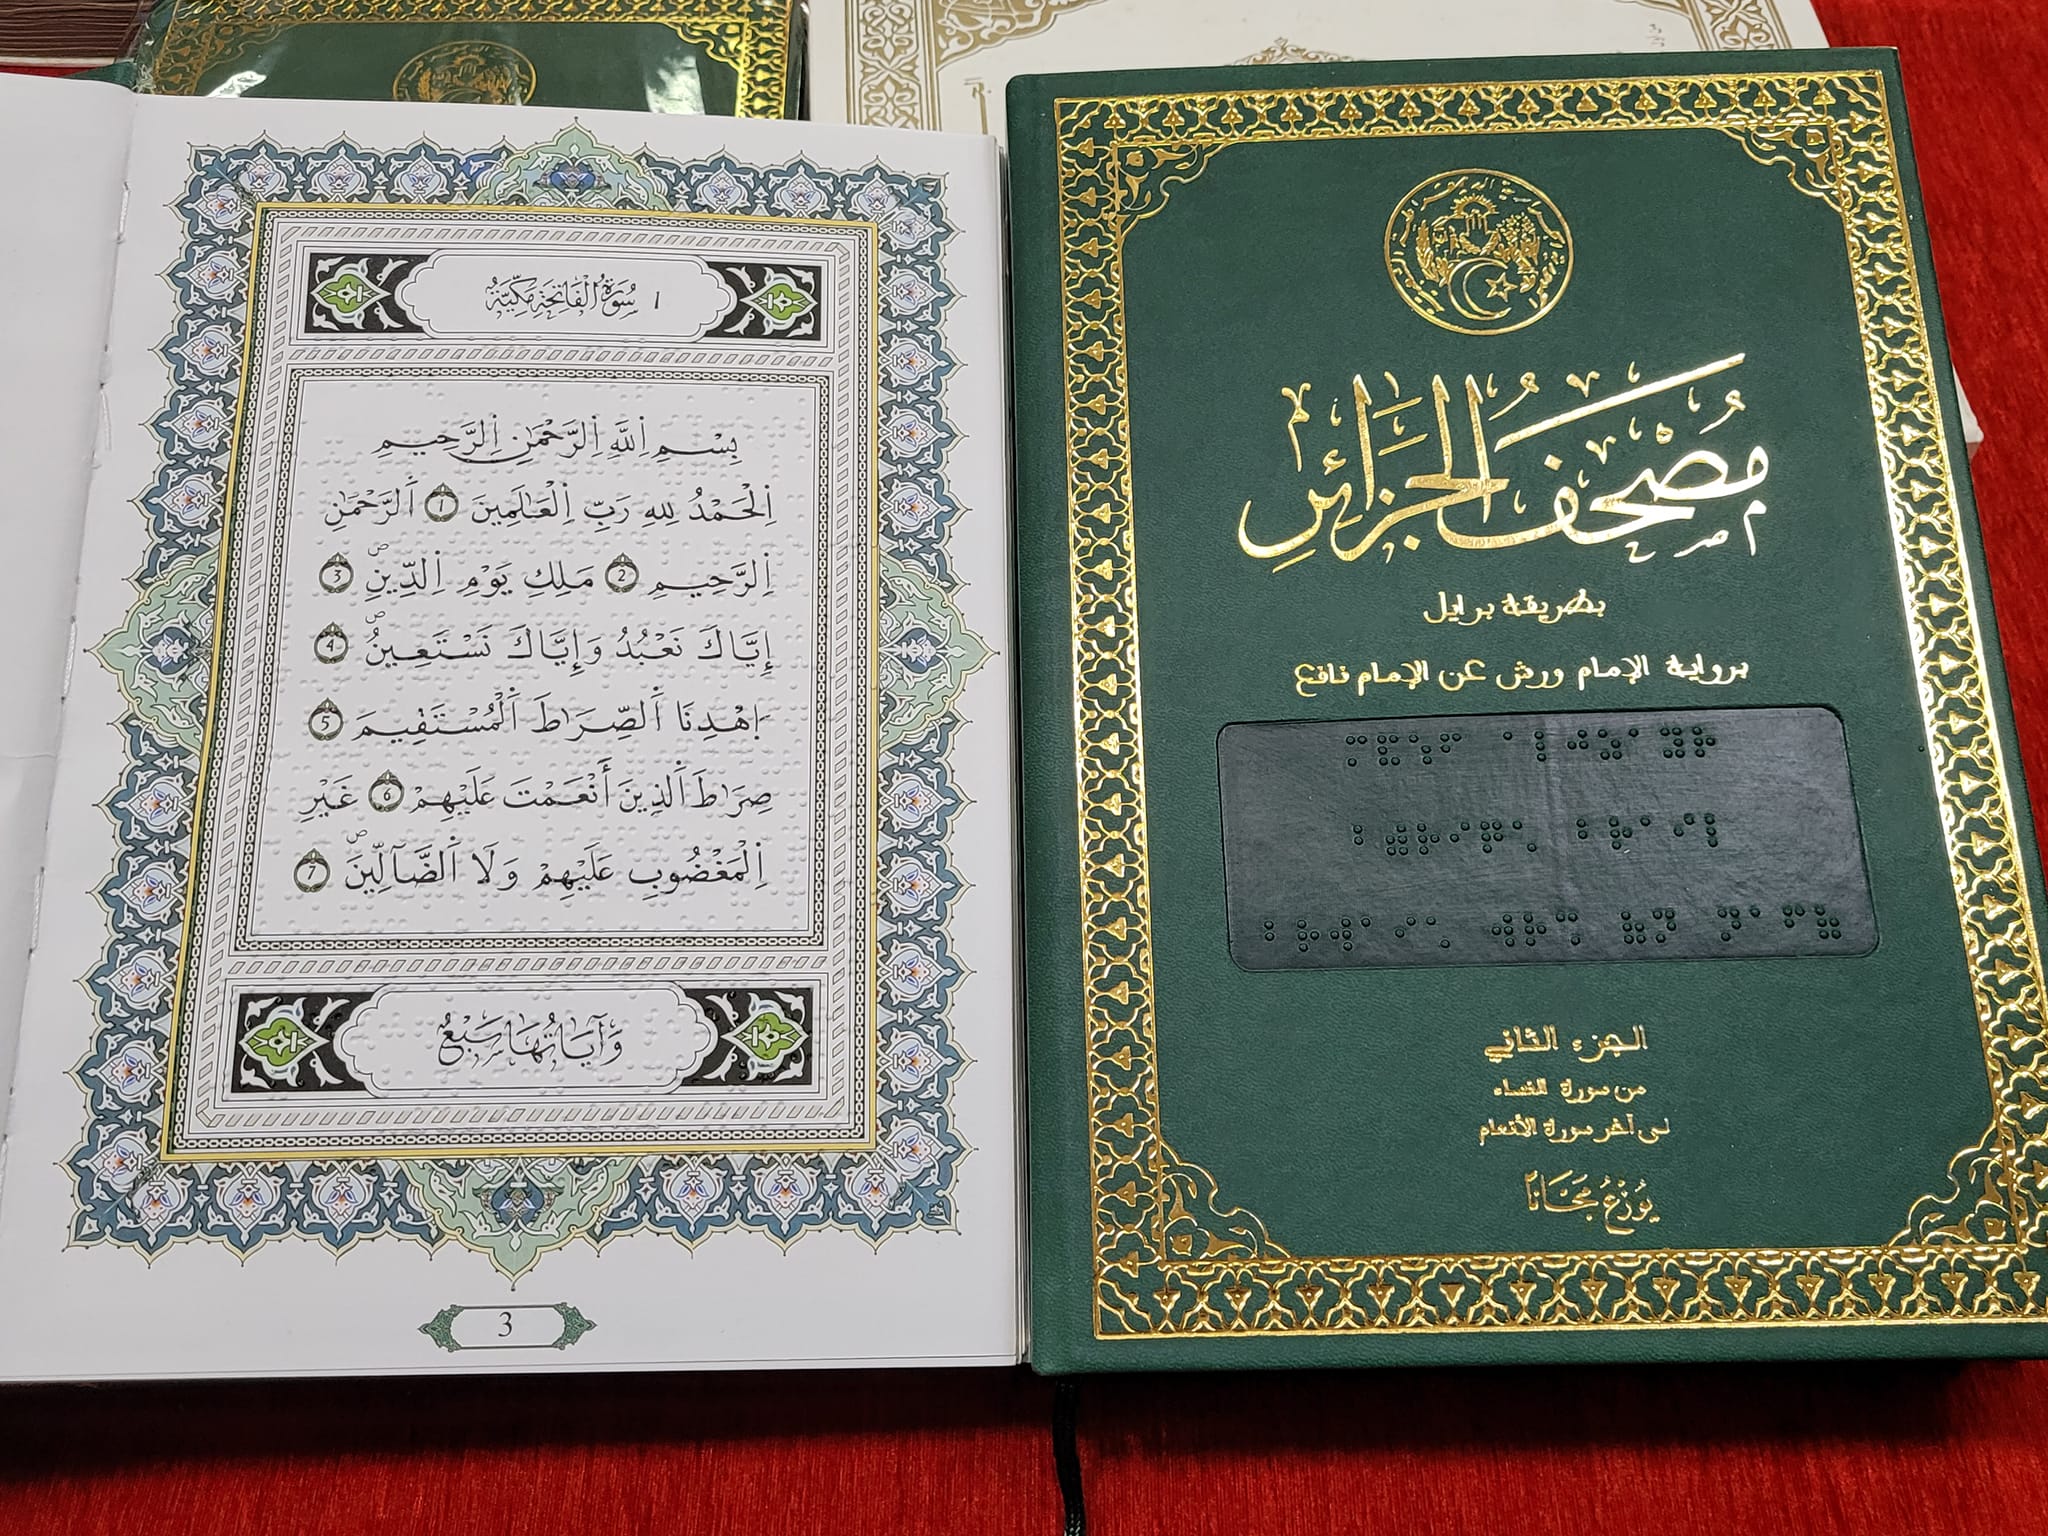 1 سُورَةُ الْفَاتِحَةِ مَكِّيَّةٌ
بِسْمِ اِللَّهِ اِلرَّحْمَٰنِ اِلرَّحِيمِ
اِلْحَمْدُ لِلهِ رَبِّ اِلْعَٰلَمِينَ 1 اَلرَّحْمَٰنِ
اِلرَّحِيمِ 2 مَلِكِ يَوْمِ اِلدِّينِۖ 3
إِيَّاكَ نَعْبُدُ وَإِيَّاكَ نَسْتَعِينُۖ 4
اِهْدِنَا اَلصِّرَٰطَ اَلْمُسْتَقِيمَ 5
صِرَٰطَ اَلذِينَ أَنْعَمْتَ عَلَيْهِمْ 6 غَيْرِ
اِلْمَغْضُوبِ عَلَيْهِمْ وَلَا اَلضَّآلِّينَۖ 7
وَآيَاتُهَا سَبْعٌ
3
مُصْحَفُ الْجَزَائِرِ
بطريقة برايل
برواية الإمام ورش عن الإمام نافع
الجزء الثاني
من سورة النساء
لى آخر سورة الأنعام
يُوَزَّعُ مَجَّانًا